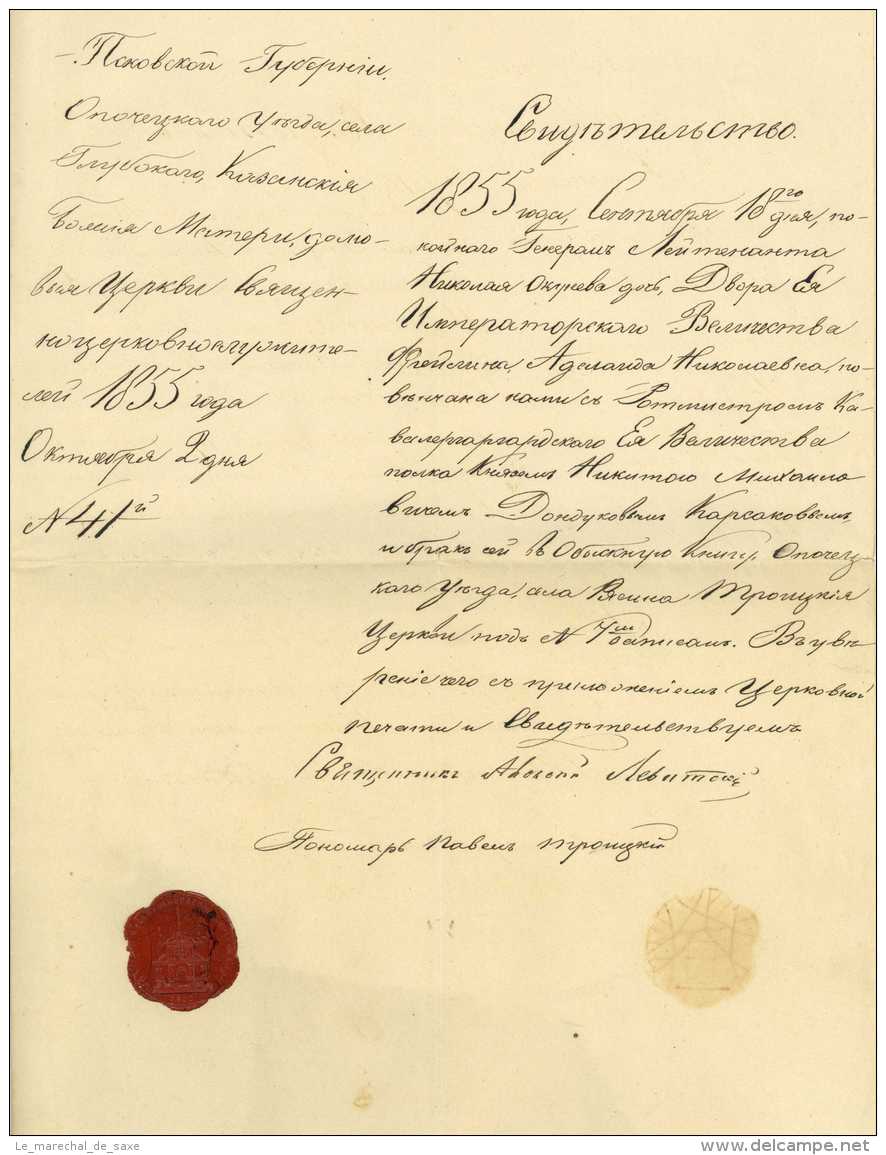 Псковской Губерніи.
Опочецкаго Уѣзда, села
Глубокаго, Казанскія
Божія Матери, домо-
выя Церкви Священ-
ноцерковнослужите-
лей 1855 года
Октября 2 дня
N 41й
Свидѣтельство.
1855 года, Сентября 18го дня, по-
койнаго Генералъ Лейтенанта
Николая Окунева дочь, Двора Ея
Императорскаго Величества
Фрейлина, Аделаида Николаевна, по-
вѣнчана нами съ Ротмистромъ Ка-
валергаргардскаго Ея Величества
полка Княземъ Никитою Михайло
вичемъ Дондуковымъ Карсаковымъ,
и бракъ сей въ Обыскную Книгу, Опочец-
каго Уѣзда, села Троицкія
Церкви подъ N записамъ. Въ увѣ-
реніе чего съ приложеніемъ Церковной
печати и Свидѣтельствуемъ
Священникъ Левитскій
Пономарь Павелъ Троицкій
Le_marechal_de_saxe
www.delcampe.net